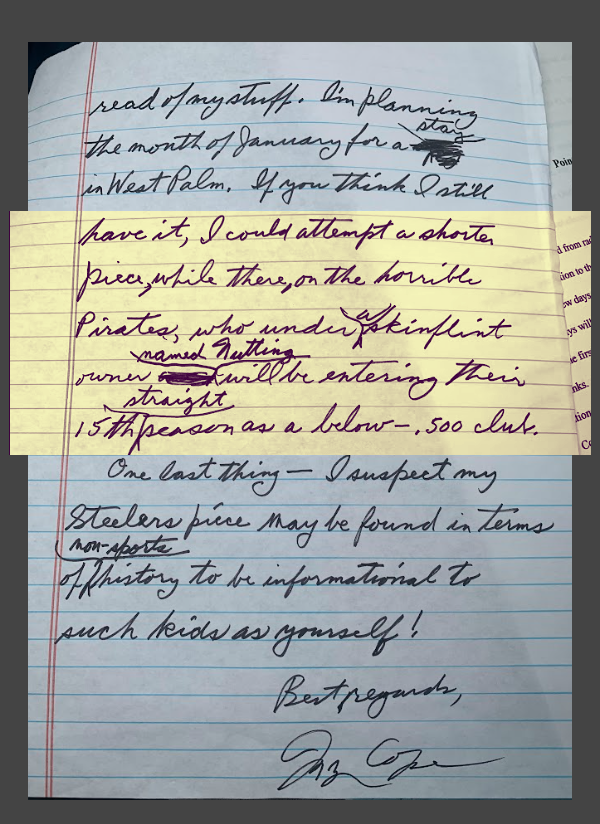 read of my stuff. I'm planning
stay
the month of January for a
in West Palm. If you think I still
have it, I could attempt a shorter
piece, while there, on the horrible
Pirates, who under a skinflint
named Nutting
owner will be entering their
straight
15th season as a below-.500 club.
One last thing — I suspect my
Steelers piece may be found in terms
non-sports
of history to be informational to
such kids as yourself!
Best regards,
Cope
Poin
d from rad
tion to th
ew days
ys will
e firs
nks.
tion
Co